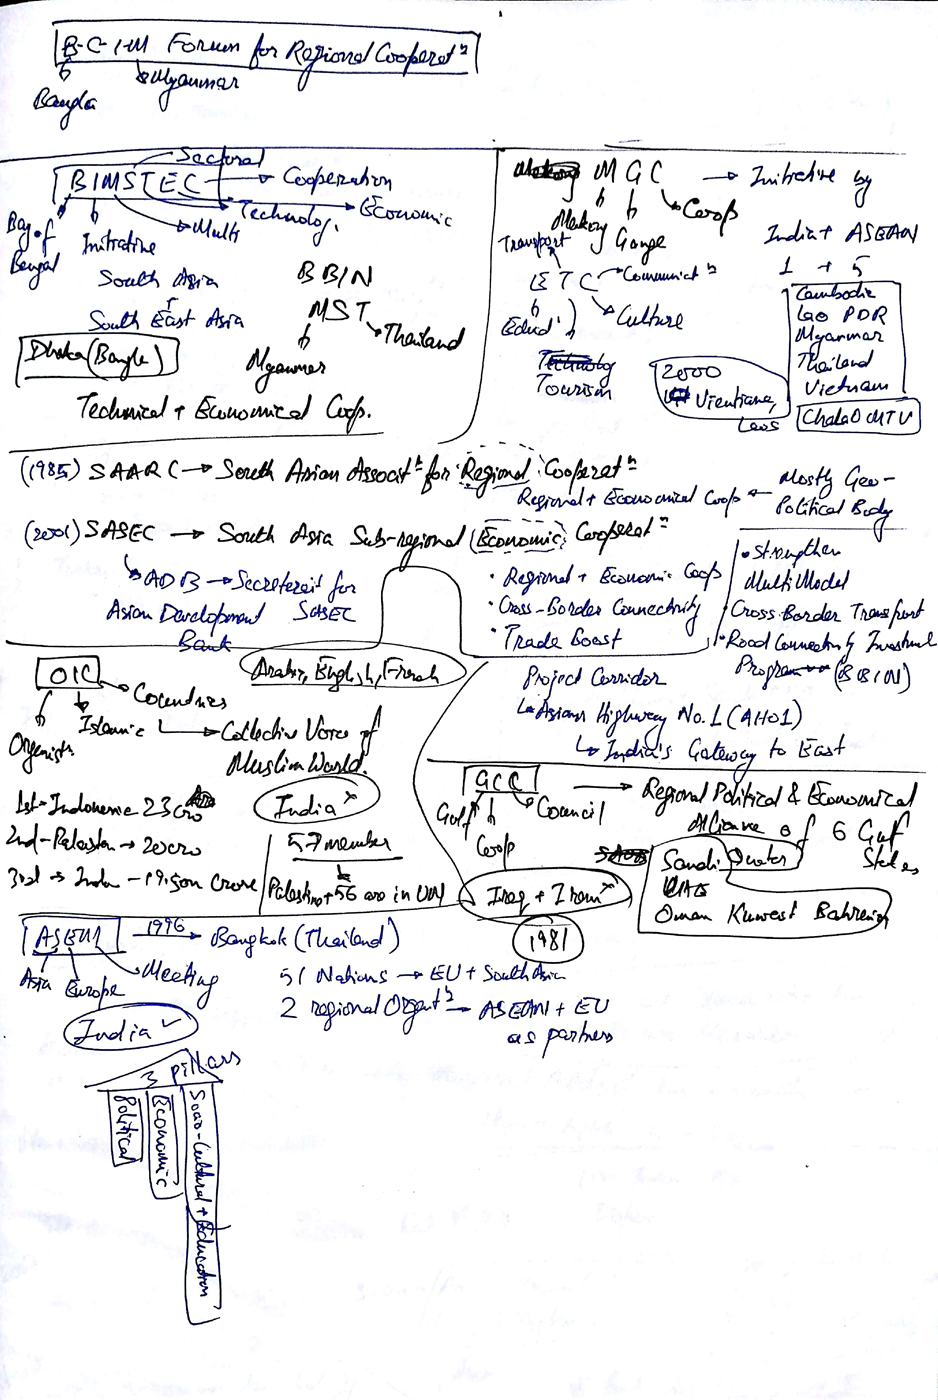 B-C-I-M Forum for Regional Cooperatⁿ
Myanmar
Bangla
Sectoral
BIMSTEC → Cooperation
Technolog.
Economic
Bay of
Bengal
Initiative
Multi
South Asia
South East Asia
BBIN
MST
Thailand
Myanmar
Dhaka (Bangla)
Technical + Economical Coop.
MGC → Initiative by
Coop
Mekong
Ganga
India + ASEAN
1 + 5
Transport
ETC
Communicatⁿ
Culture
Educⁿ
Tourism
2000
Vientiane,
Laos
Cambodia
Lao PDR
Myanmar
Thailand
Vietnam
(1985) SAARC → South Asian Associatⁿ for Regional Cooperatⁿ
Regional + Economical Coop ← Mostly Geo-
Political Body
(2001) SASEC → South Asia Sub-regional (Economic) Cooperatⁿ
ADB → Secretereit for
SASEC
Asian Development
Bank
• Regional + Economic Coop
• Cross-Border Connectivity
• Trade Boost
• Strengthen
MultiModel
• Cross Border Transport
• Road Connectivity Investment
Program → (BBIN)
Project Corridor
↳ Asians Highway No.1 (AH01)
↳ India's Gateway to East
OIC
Countries
Islamic
Arabic, English, French
→ Collective Voice of
Muslim World.
1st - Indonesia 23 cro
2nd - Pakistan → 20 cro
3rd → India - 19.5 crore
India ×
57 member
Palestine + 56 are in UN
GCC → Regional Political & Economical
Alliance of 6 Gulf
States
Gulf
Coop
Council
Saudi Quater
UAE
Oman Kuwest Bahrein
Iraq + Iran ×
1981
ASEM 1996 → Bangkok (Thailand)
Asia
Europe
Meeting
India ✓
51 Nations → EU + South Asia
2 regional Orgentⁿ → ASEAN + EU
as partners
3 pillars
Political
Economic
Socio-Cultural + Education